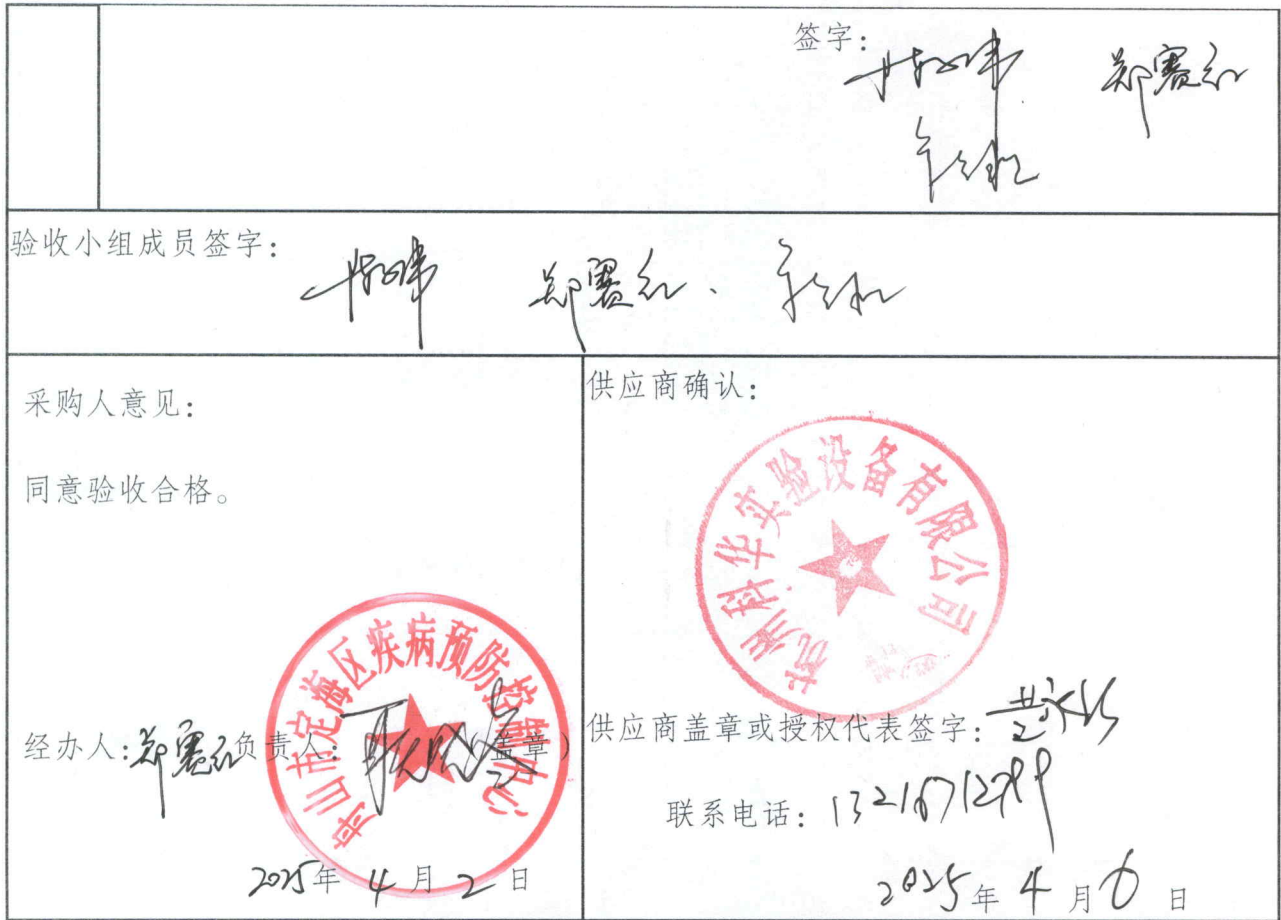 签字：
郑赛红
验收小组成员签字：
郑赛红、
采购人意见：
同意验收合格。
舟山市定海区疾病预防控制中心
经办人：郑赛红 负责人： （盖章）
2025年4月2日
供应商确认：
杭州科华实验设备有限公司
供应商盖章或授权代表签字：
联系电话：
2025年4月6日